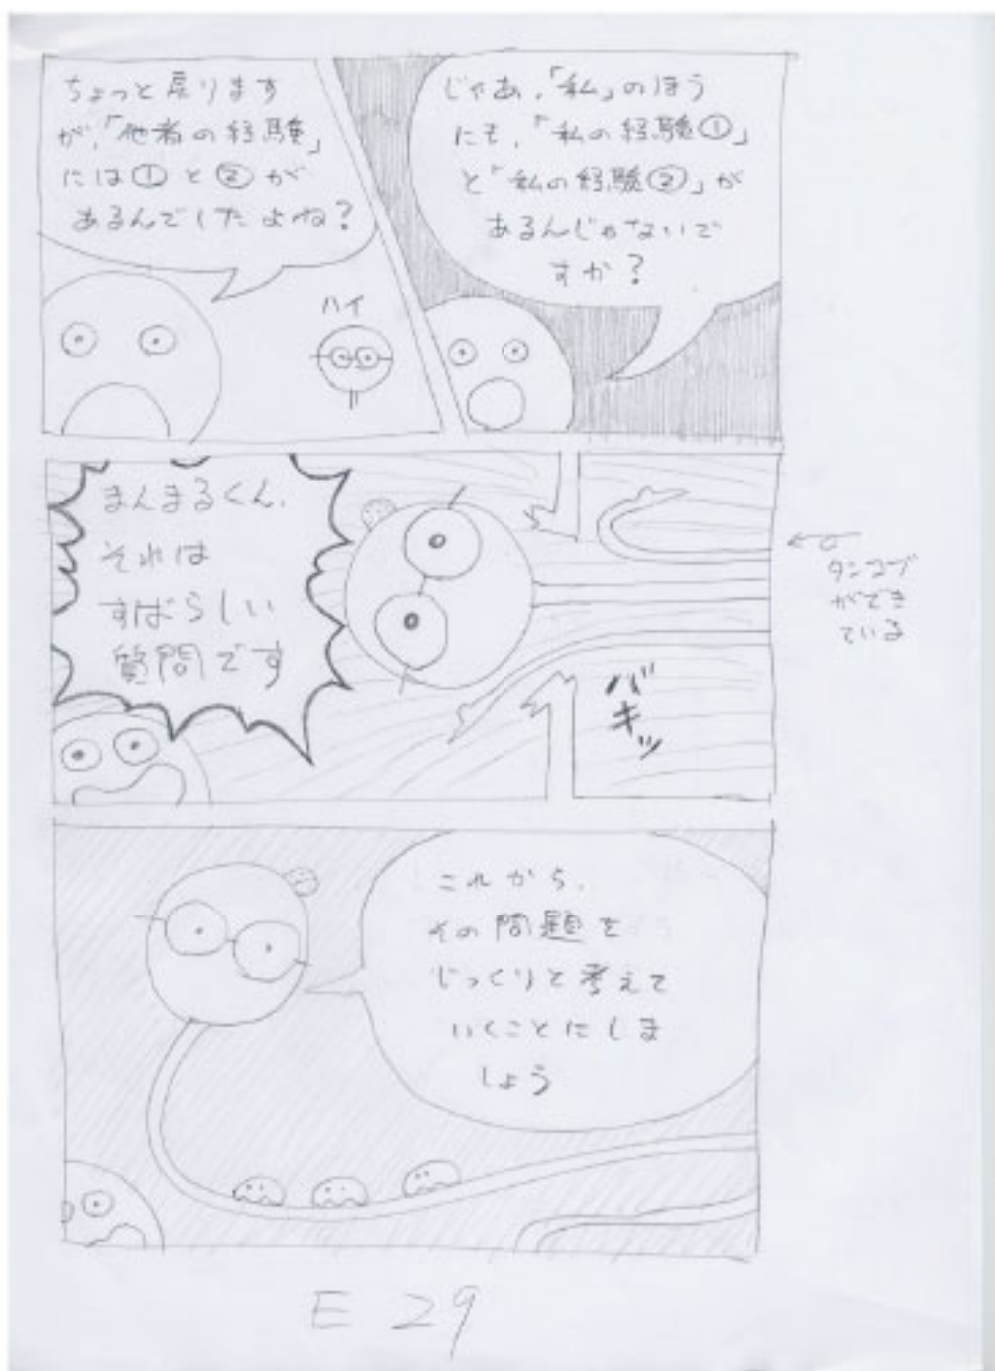 ちょっと戻ります
が、「他者の経験」
には①と②が
あるんでしたよね？
ハイ
じゃあ、「私」のほう
にも、「私の経験①」
と「私の経験②」が
あるんじゃないで
すか？
まんまるくん、
それは
すばらしい
質問です
バキッ
タンコブ
ができ
ている
これから、
その問題を
じっくりと考えて
いくことにしま
しょう
E 29